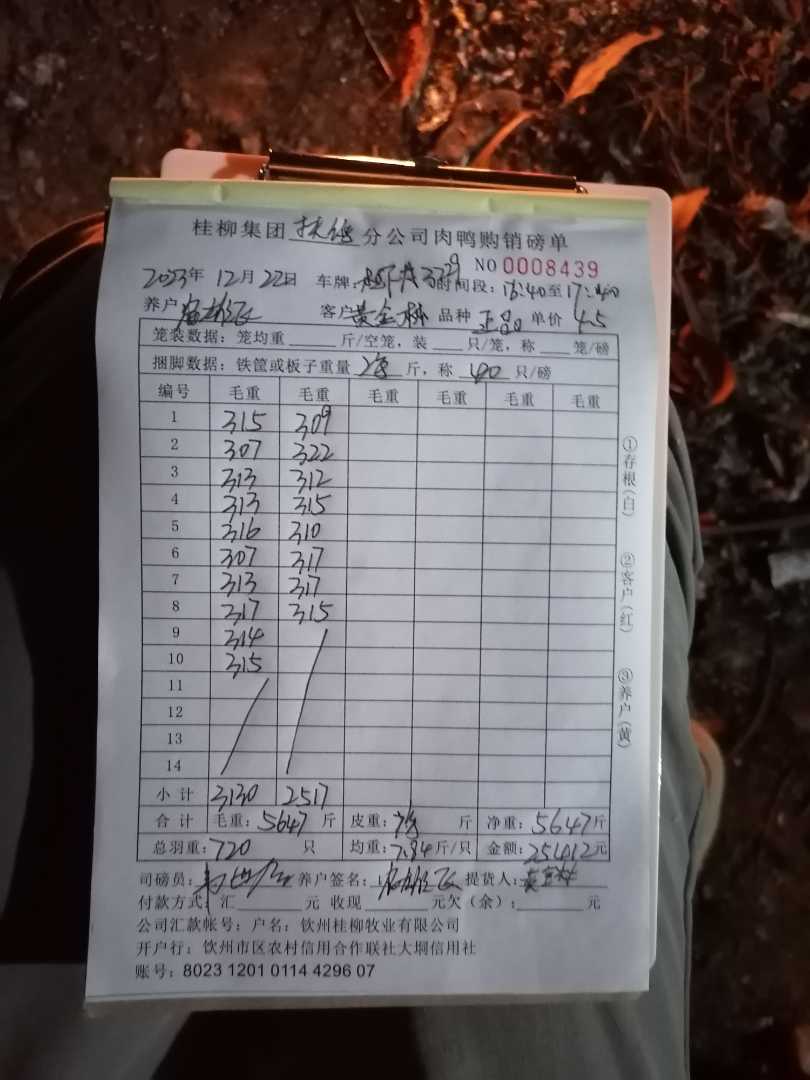 桂柳集团 扶绥 分公司肉鸭购销磅单
NO 0008439
2023年 12月 22日 车牌: 3729 时间段: 16:40至17:40
养户 客户 黄金林 品种 正品 单价 4.5
笼装数据: 笼均重 斤/空笼, 装 只/笼, 称 笼/磅
捆脚数据: 铁筐或板子重量 清 斤, 称 40 只/磅
编号 毛重 毛重 毛重 毛重 毛重 毛重
1 315 309
2 307 322
3 313 312
4 313 315
5 316 310
6 307 317
7 313 317
8 317 315
9 314
10 315
11
12
13
14
小计 3130 2517
合计 毛重: 5647 斤 皮重: 清 斤 净重: 5647 斤
总羽重: 720 只 均重: 7.84 斤/只 金额: 25412 元
司磅员: 养户签名: 提货人: 黄金林
付款方式: 汇 元 收现 元欠(余): 元
公司汇款帐号: 户名: 钦州桂柳牧业有限公司
开户行: 钦州市区农村信用合作联社大垌信用社
账号: 8023 1201 0114 4296 07
①存根(白)
②客户(红)
③养户(黄)